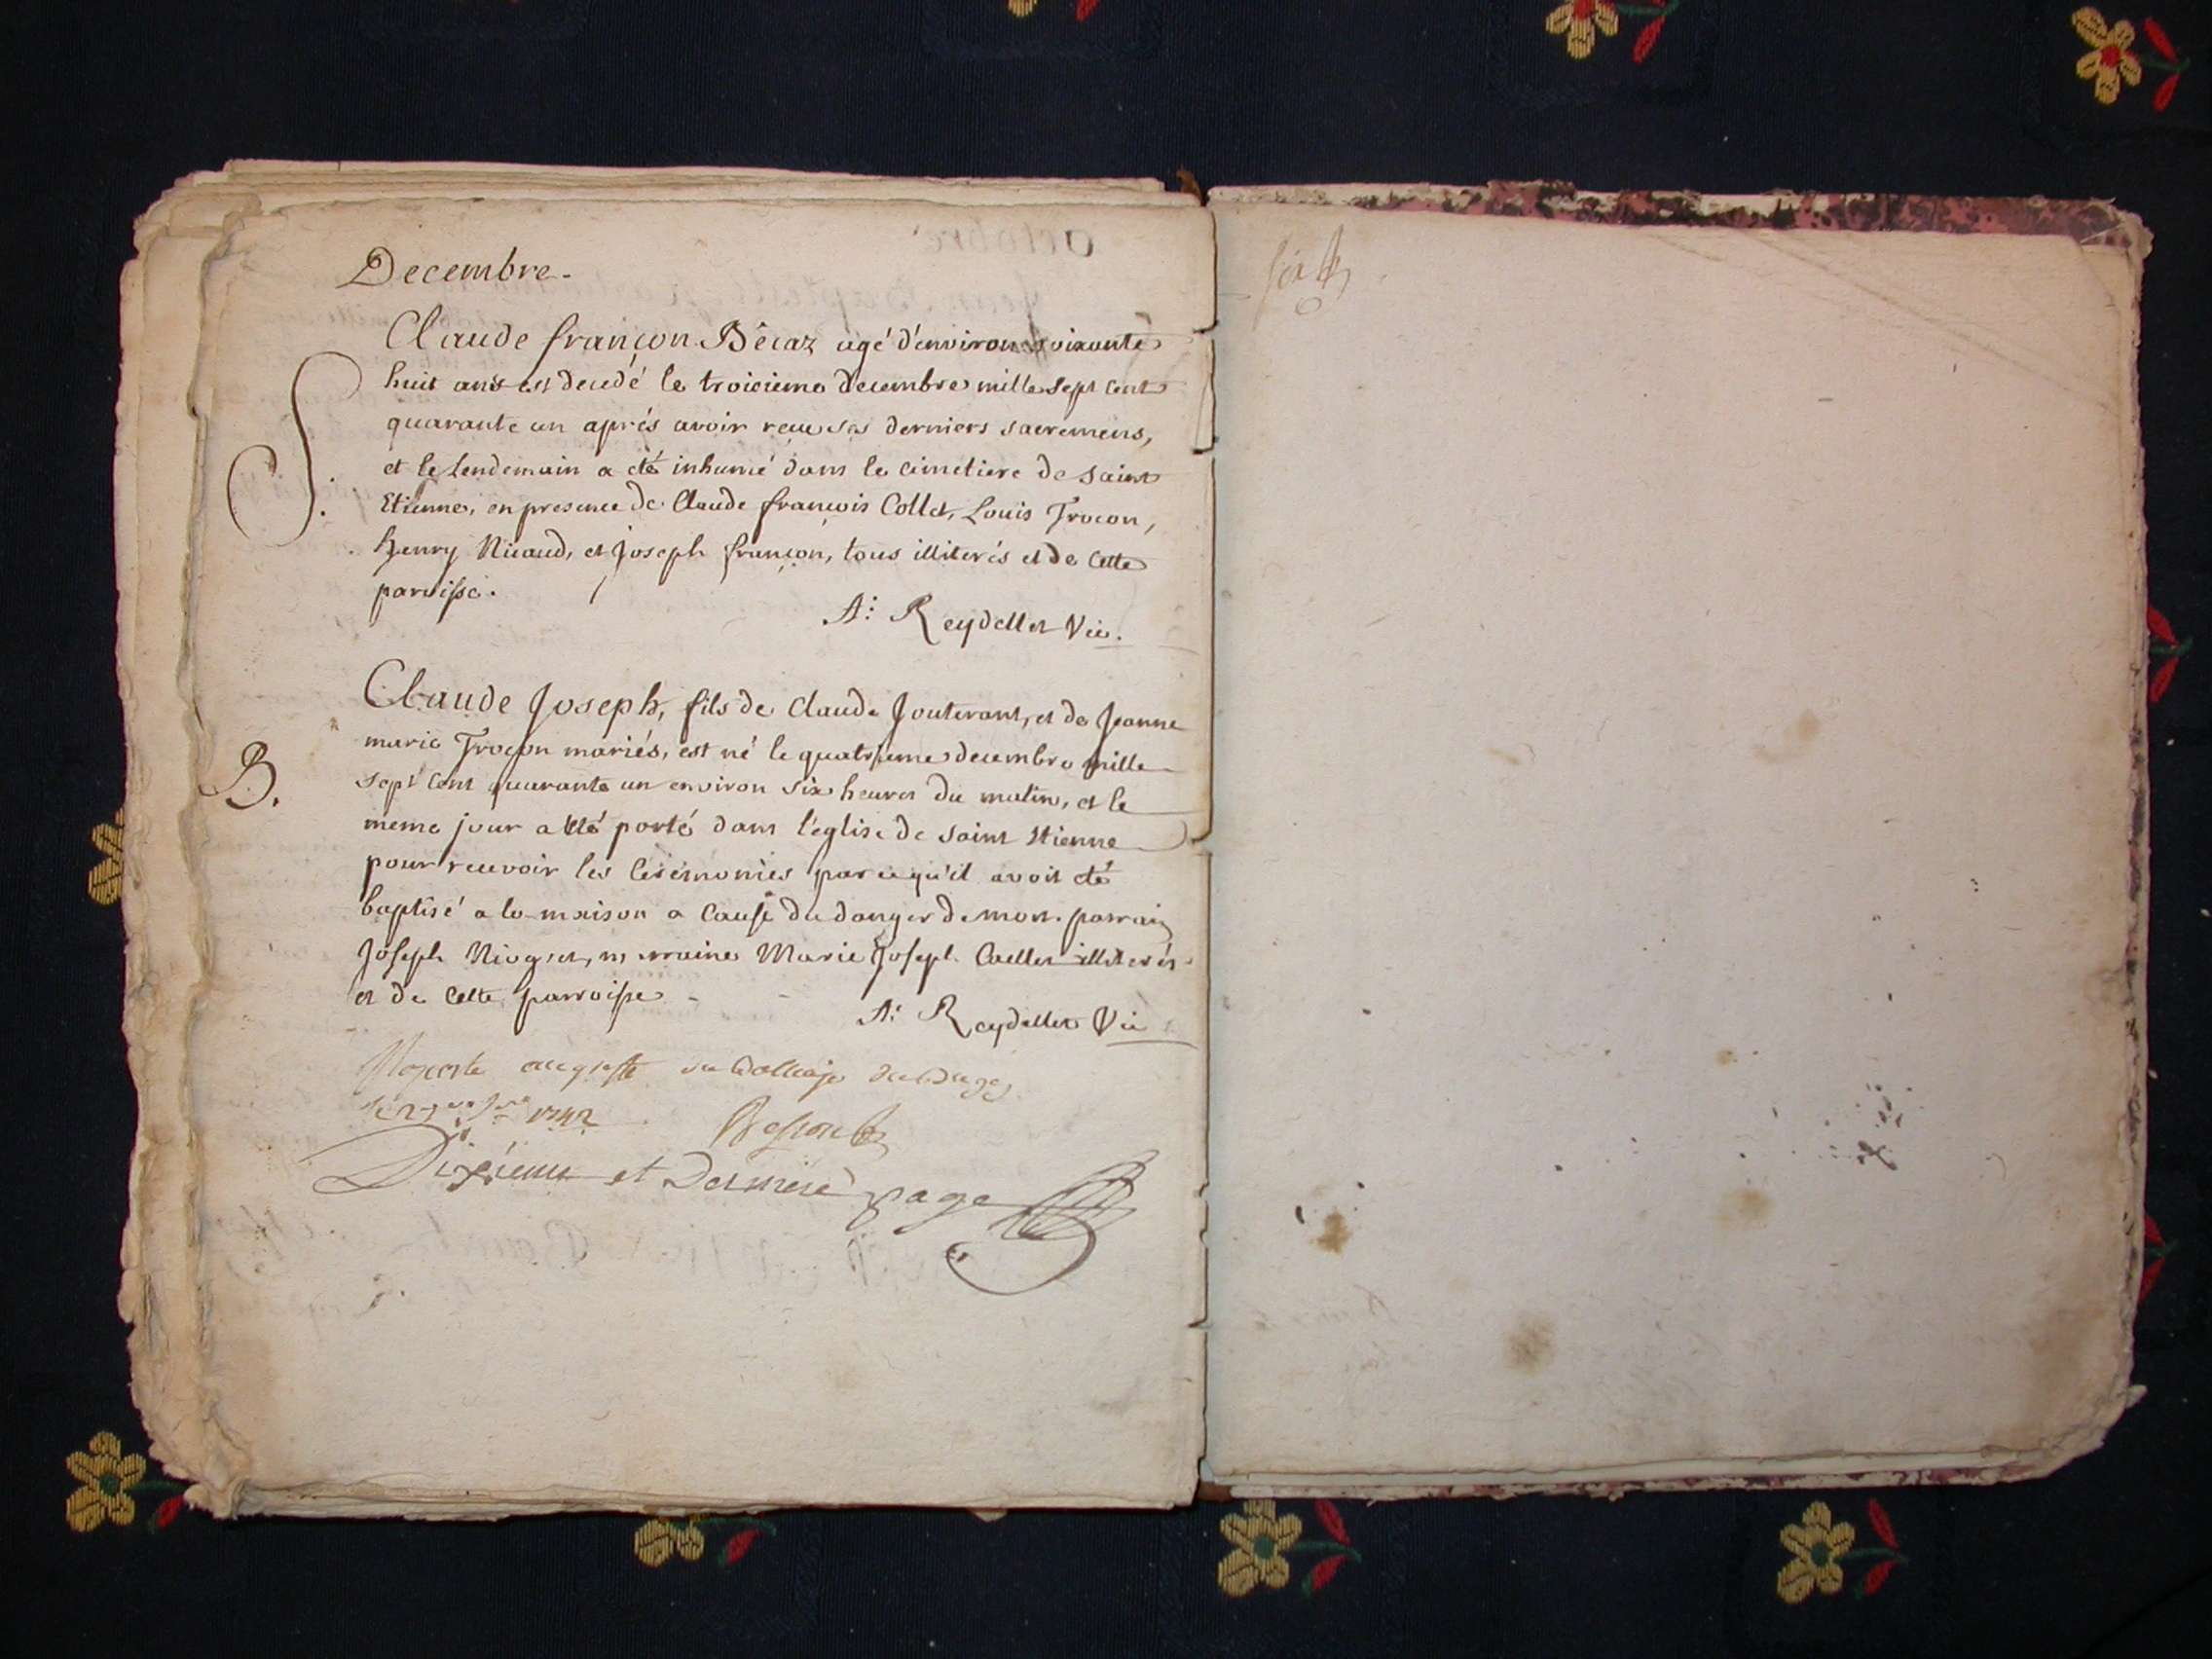 Decembre.
Claude françon Bécaz agé d'environ soixante
huit ans est decedé le troisieme decembre mille sept cent
quarante un aprés avoir reçu ses derniers sacremens,
et le lendemain a été inhumé dans le cimetiere de saint
Etienne, en presence de Claude françois Collet, Louis Troçon,
henry Nicaud, et Joseph françon, tous illiterés et de cette
S.
paroisse.
A: Reydellet Vic.
Claude Joseph, fils de Claude Jouterant, et de Jeanne
marie Troçon mariés, est né le quatrieme decembre mille
B.
sept cent quarante un environ six heures du matin, et le
meme jour a été porté dans l'eglise de saint Etienne
pour recevoir les cerémonies parcequ'il avoit été
baptisé a la maison a cause du danger de mort. parrain
Joseph Niogret, marraine Marie Joseph Caillet illiterés
et de cette parroisse
A: Reydellet Vic
1742
Dixieme et Derniere page